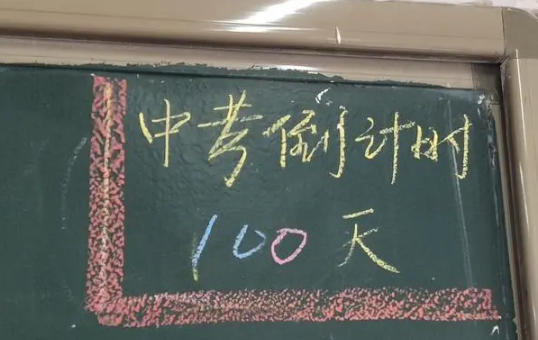 中考倒计时
100天